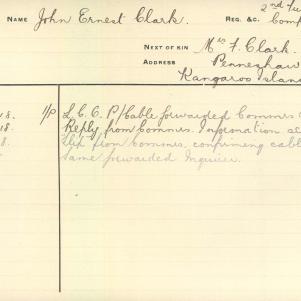 2nd
NAME John Ernest Clark. REG. &C.
NEXT OF KIN Mrs F. Clark.
ADDRESS Penneshaw
Kangaroo Island
18. 1/P L.C.C. P/Cable forwarded Commrs
18. Reply from Commrs. Information as
18. slip from Commrs, confirming cable
same forwarded Inquirer.